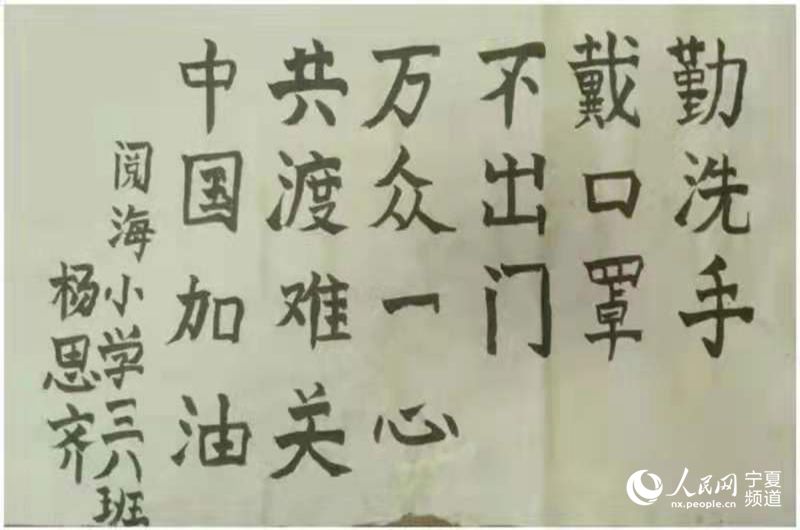 勤洗手
戴口罩
不出门
万众一心
共渡难关
中国加油
阅海小学三八班
杨思齐
人民网 宁夏频道
nx.people.cn